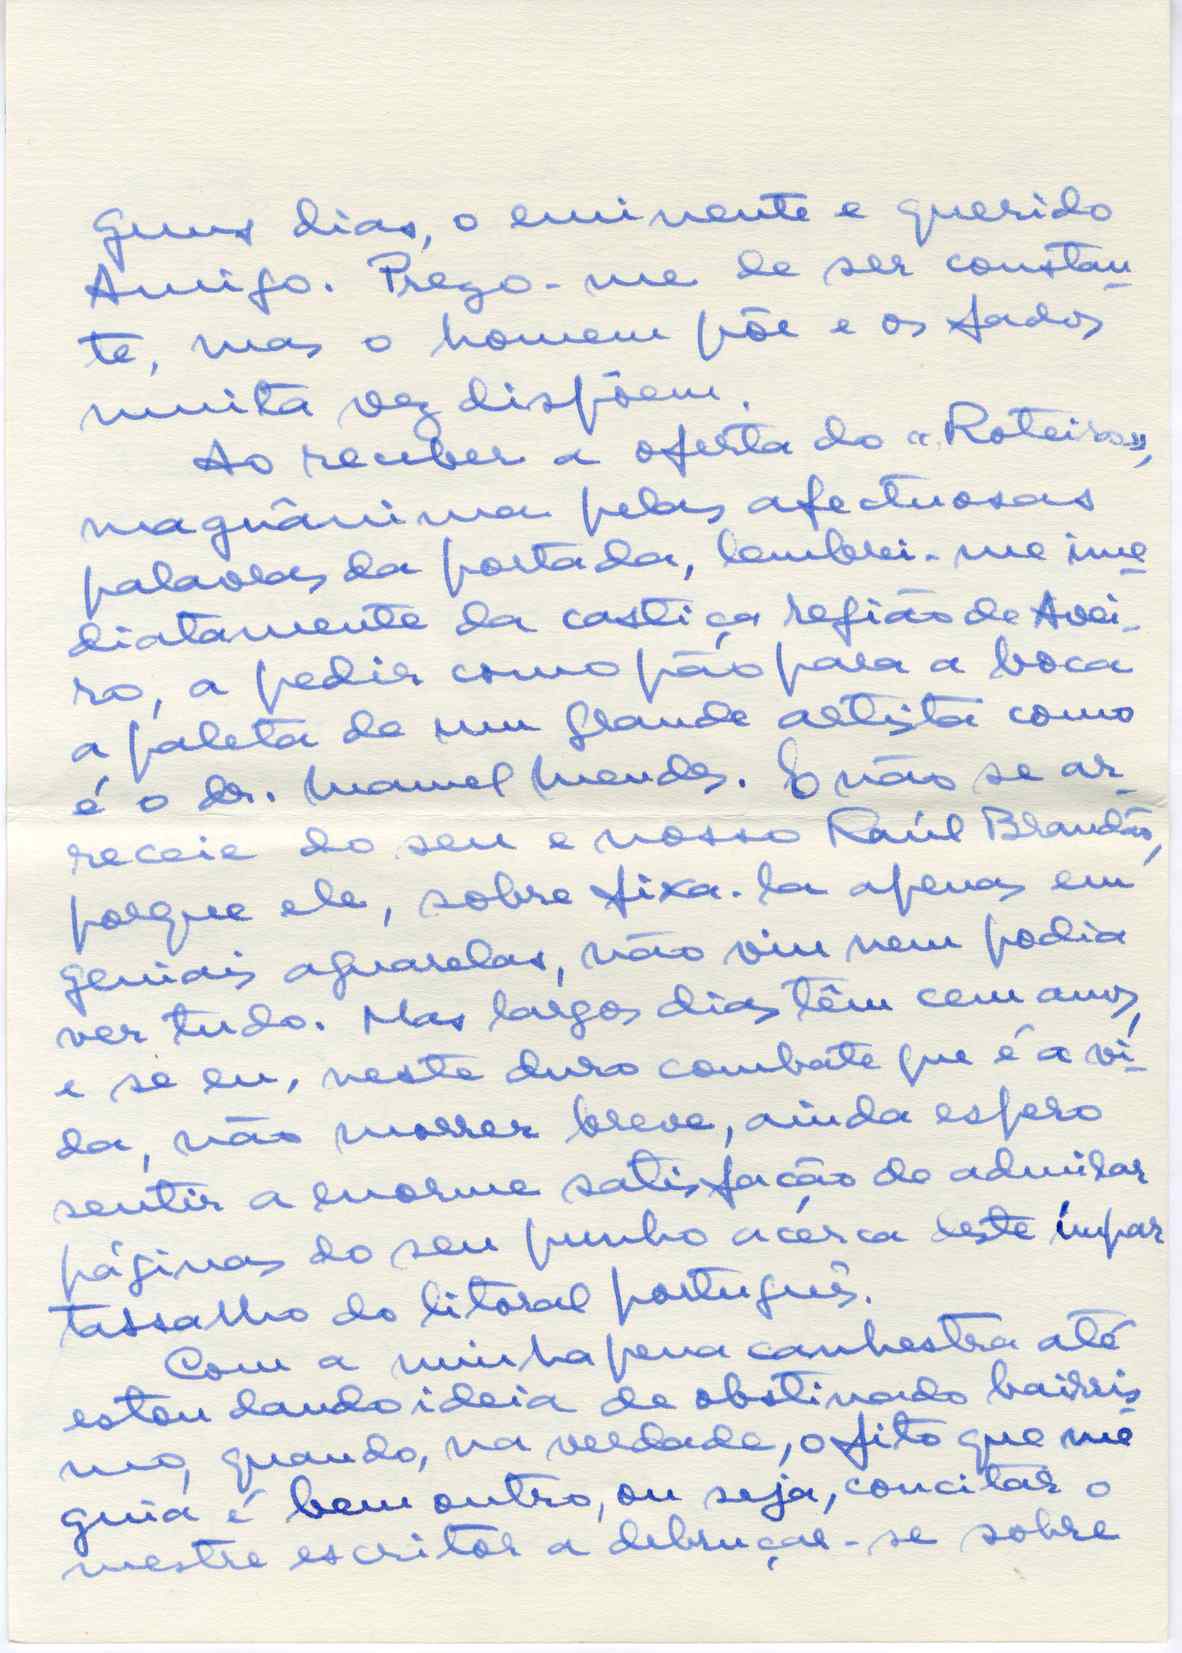 guns dias, o eminente e querido
Amigo. Prezo-me de ser constan-
te, mas o homem põe e os fados
muita vez dispõem.
Ao receber a oferta do «Roteiro»,
magnânima pelas afectuosas
palavras da portada, lembrei-me ime-
diatamente da castiça região de Avei-
ro, a pedir como pão para a boca
a paleta de um grande artista como
é o dr. Manuel Mendes. E não se ar-
receie do seu e nosso Raúl Brandão,
porque ele, sobre fixa-la apenas em
geniais aguarelas, não viu nem podia
ver tudo. Mas largos dias têm cem anos,
e se eu, neste duro combate que é a vi-
da, não morrer breve, ainda espero
sentir a enorme satisfação de admirar
páginas do seu punho acêrca deste ímpar
tassalho do litoral português.
Com a minha pena canhestra até
estou dando ideia de obstinado bairris
mo, quando, na verdade, o fito que me
guia é bem outro, ou seja, concitar o
mestre escritor a debruçar-se sobre